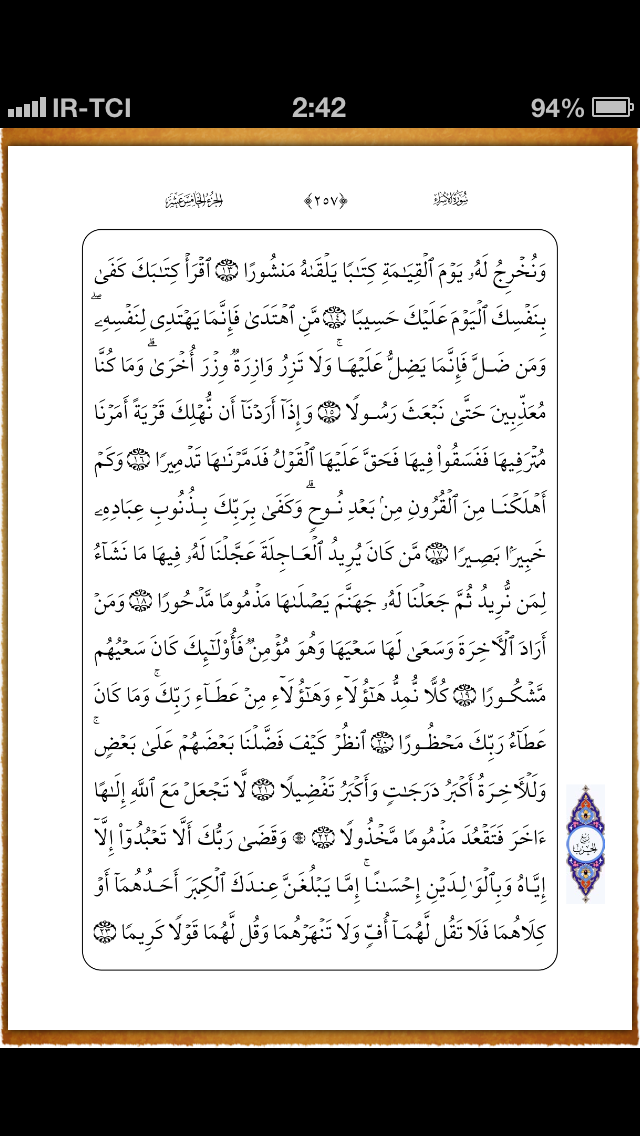 IR-TCI 2:42 94%
سُورَةُ الإِسرَاء ﴿٢٥٧﴾ الجُزءُ الخَامِسَ عَشَرَ
وَنُخْرِجُ لَهُۥ يَوْمَ ٱلْقِيَـٰمَةِ كِتَـٰبًا يَلْقَىٰهُ مَنشُورًا ١٣ ٱقْرَأْ كِتَـٰبَكَ كَفَىٰ
بِنَفْسِكَ ٱلْيَوْمَ عَلَيْكَ حَسِيبًا ١٤ مَّنِ ٱهْتَدَىٰ فَإِنَّمَا يَهْتَدِى لِنَفْسِهِۦ ۖ
وَمَن ضَلَّ فَإِنَّمَا يَضِلُّ عَلَيْهَا ۚ وَلَا تَزِرُ وَازِرَةٌ وِزْرَ أُخْرَىٰ ۗ وَمَا كُنَّا
مُعَذِّبِينَ حَتَّىٰ نَبْعَثَ رَسُولًا ١٥ وَإِذَآ أَرَدْنَآ أَن نُّهْلِكَ قَرْيَةً أَمَرْنَا
مُتْرَفِيهَا فَفَسَقُوا۟ فِيهَا فَحَقَّ عَلَيْهَا ٱلْقَوْلُ فَدَمَّرْنَـٰهَا تَدْمِيرًا ١٦ وَكَمْ
أَهْلَكْنَا مِنَ ٱلْقُرُونِ مِنۢ بَعْدِ نُوحٍ ۗ وَكَفَىٰ بِرَبِّكَ بِذُنُوبِ عِبَادِهِۦ
خَبِيرًۢا بَصِيرًا ١٧ مَّن كَانَ يُرِيدُ ٱلْعَاجِلَةَ عَجَّلْنَا لَهُۥ فِيهَا مَا نَشَآءُ
لِمَن نُّرِيدُ ثُمَّ جَعَلْنَا لَهُۥ جَهَنَّمَ يَصْلَىٰهَا مَذْمُومًا مَّدْحُورًا ١٨ وَمَنْ
أَرَادَ ٱلْـَٔاخِرَةَ وَسَعَىٰ لَهَا سَعْيَهَا وَهُوَ مُؤْمِنٌ فَأُو۟لَـٰٓئِكَ كَانَ سَعْيُهُم
مَّشْكُورًا ١٩ كُلًّا نُّمِدُّ هَـٰٓؤُلَآءِ وَهَـٰٓؤُلَآءِ مِنْ عَطَآءِ رَبِّكَ ۚ وَمَا كَانَ
عَطَآءُ رَبِّكَ مَحْظُورًا ٢٠ ٱنظُرْ كَيْفَ فَضَّلْنَا بَعْضَهُمْ عَلَىٰ بَعْضٍ ۚ
وَلَلْـَٔاخِرَةُ أَكْبَرُ دَرَجَـٰتٍ وَأَكْبَرُ تَفْضِيلًا ٢١ لَّا تَجْعَلْ مَعَ ٱللَّهِ إِلَـٰهًا
ءَاخَرَ فَتَقْعُدَ مَذْمُومًا مَّخْذُولًا ٢٢ ۞ وَقَضَىٰ رَبُّكَ أَلَّا تَعْبُدُوٓا۟ إِلَّآ
إِيَّاهُ وَبِٱلْوَٰلِدَيْنِ إِحْسَـٰنًا ۚ إِمَّا يَبْلُغَنَّ عِندَكَ ٱلْكِبَرَ أَحَدُهُمَآ أَوْ
كِلَاهُمَا فَلَا تَقُل لَّهُمَآ أُفٍّ وَلَا تَنْهَرْهُمَا وَقُل لَّهُمَا قَوْلًا كَرِيمًا ٢٣
رُبع
الحِزب